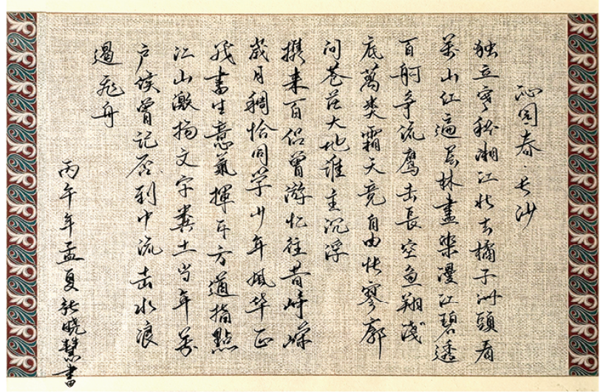 沁园春 长沙
独立寒秋湘江北去橘子洲頭看
万山红遍层林盡染漫江碧透
百舸争流鹰击長空鱼翔浅
底萬类霜天竞自由怅寥廓
问苍茫大地谁主沉浮
携来百侣曾游忆往昔峥嵘
歲月稠恰同学少年风华正
茂書生意氣揮斥方遒指點
江山激扬文字粪土当年万
户侯曾记否到中流击水浪
遏飞舟
丙午年孟夏张晓慧書